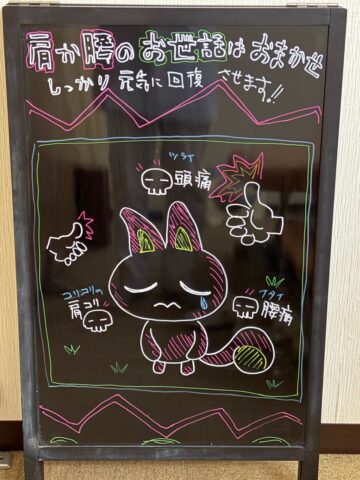 肩か腰のお世話はおまかせ
しっかり元気に回復させます!!
ツライ
頭痛
コリコリの
肩コリ
イタイ
腰痛